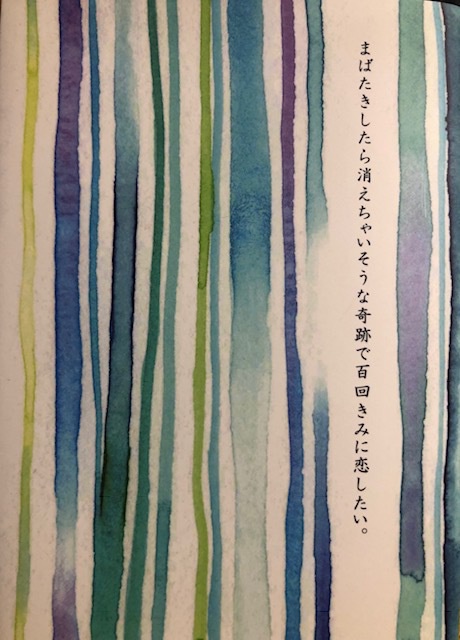 まばたきしたら消えちゃいそうな奇跡で百回きみに恋したい。